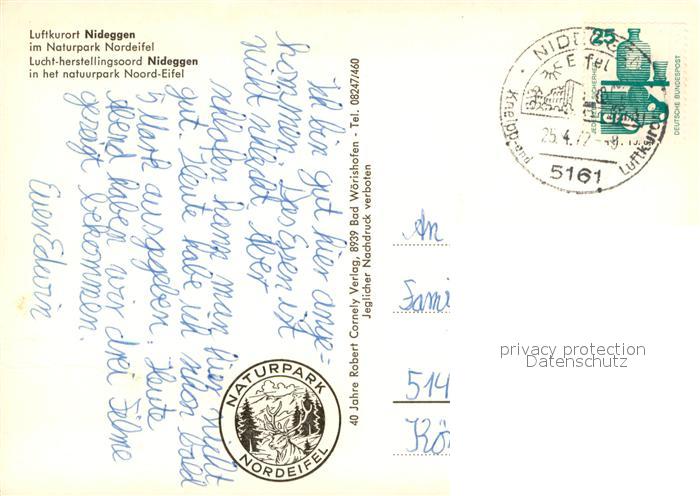 Luftkurort Nideggen
im Naturpark Nordeifel
Lucht-herstellingsoord Nideggen
in het natuurpark Noord-Eifel
Ich bin gut hier ange=
kommen. Das Essen ist
nicht schlecht aber
schlafen kann man hier nicht
gut. Heute habe ich schon bald
5 Mark ausgegeben. Heute
Abend haben wir drei Filme
gezeigt bekommen.
Euer Edwin
40 Jahre Robert Cornely Verlag, 8939 Bad Wörishofen - Tel. 08247/460
Jeglicher Nachdruck verboten
NATURPARK
NORDEIFEL
NIDEGGEN
Eifel
25.4.72
Kneipp- und
Luftkurort
5161
25
DEUTSCHE BUNDESPOST
An
Fami
514
Kö
privacy protection
Datenschutz